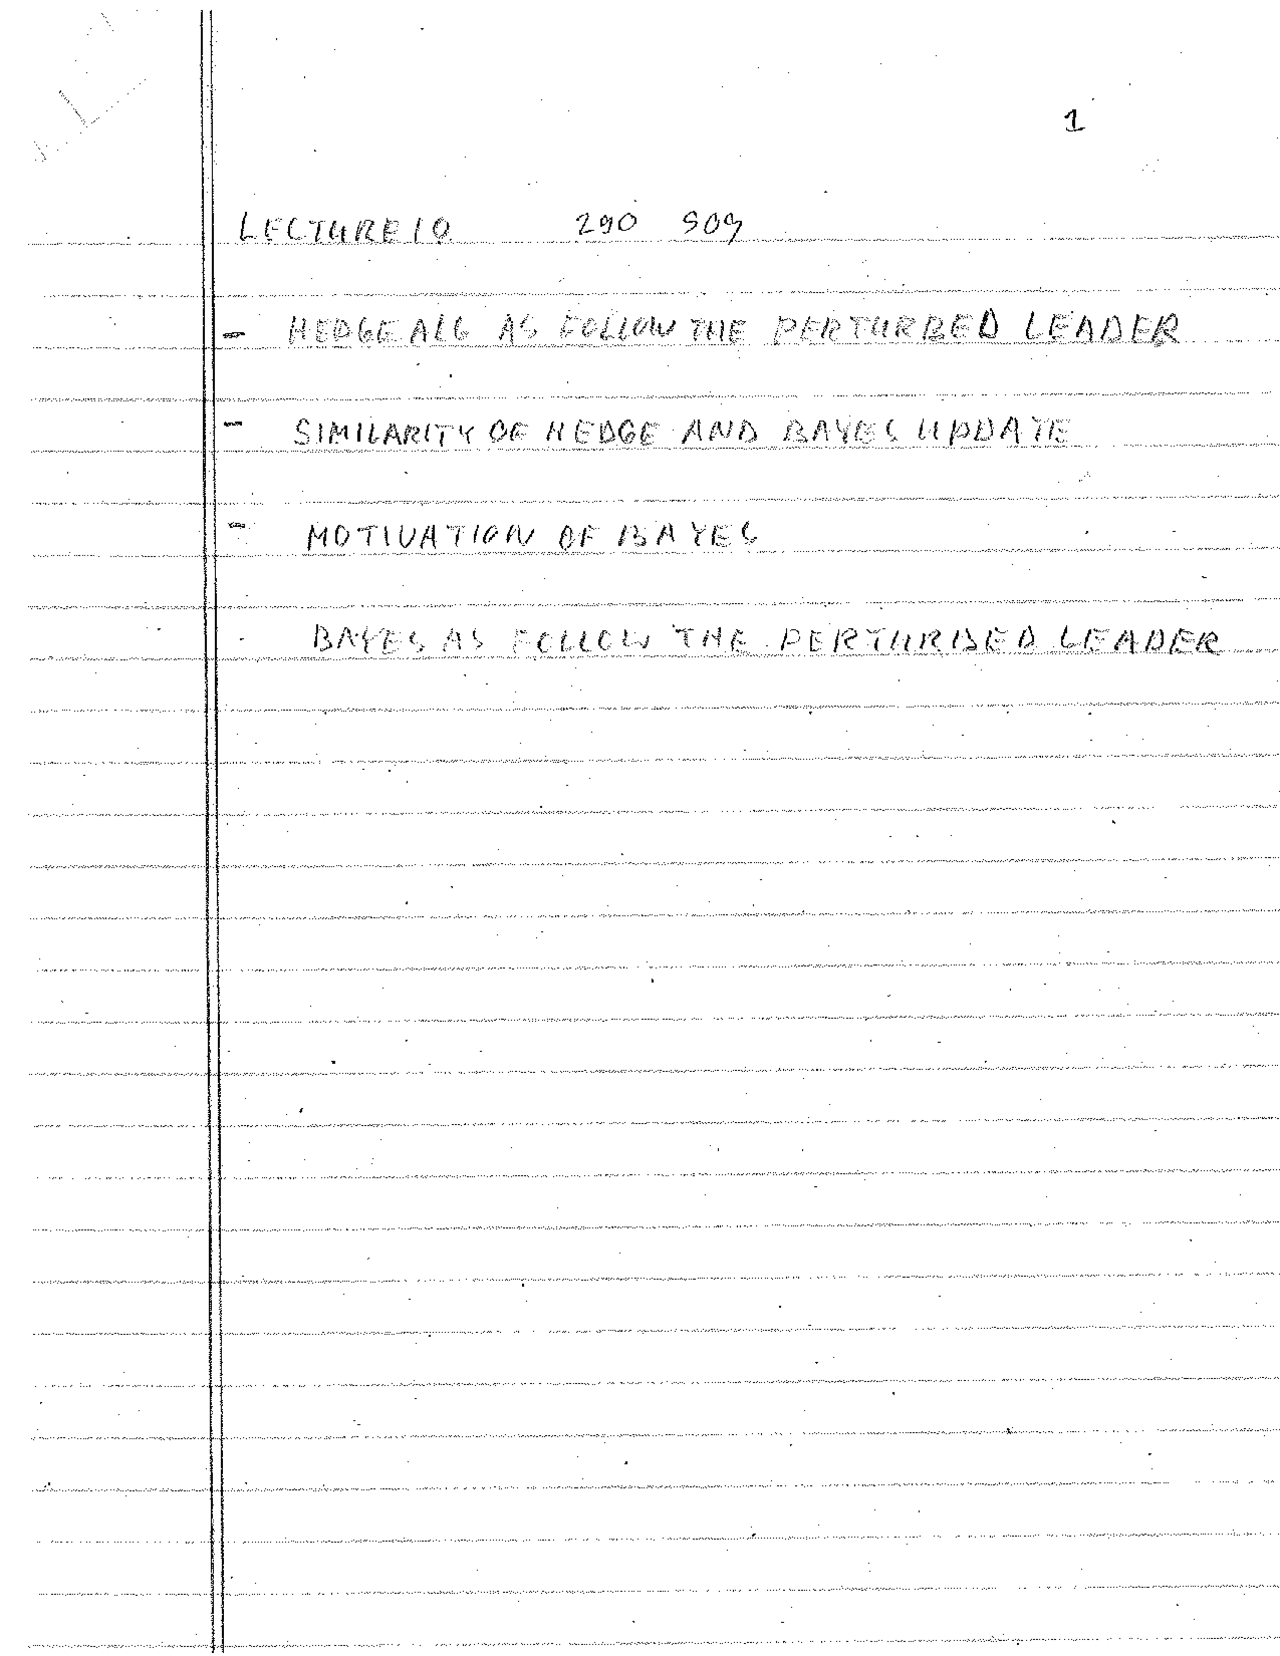 1
LECTURE 10 290 S09
- HEDGE ALG AS FOLLOW THE PERTURBED LEADER
- SIMILARITY OF HEDGE AND BAYES UPDATE
- MOTIVATION OF BAYES
BAYES AS FOLLOW THE PERTURBED LEADER